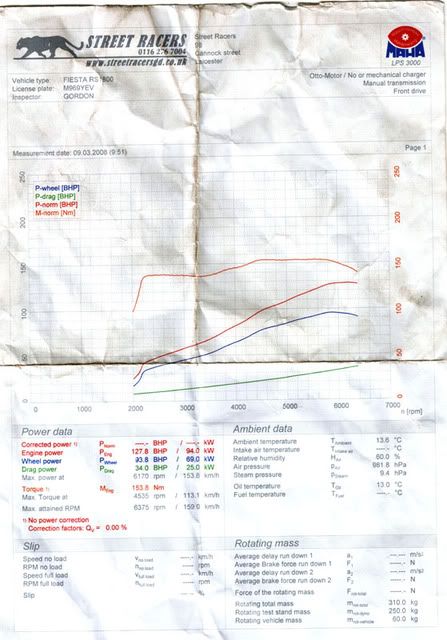 STREET RACERS
0116 276 7004
www.streetracersgd.co.uk
Street Racers
98
Cannock street
Leicester
MAHA
LPS 3000
Vehicle type: FIESTA RS1800
License plate: M969YEV
Inspector: GORDON
Otto-Motor / No or mechanical charger
Manual transmission
Front drive
Measurement date: 09.03.2008 (9:51)
Page 1
P-wheel [BHP]
P-drag [BHP]
P-norm [BHP]
M-norm [Nm]
250
200
150
100
50
0
250
200
150
100
50
0
0 1000 2000 3000 4000 5000 6000 7000
n [rpm]
Power data
Corrected power ¹) P Norm ---.- BHP / ---.- kW
Engine power P Eng 127.8 BHP / 94.0 kW
Wheel power P Wheel 93.8 BHP / 69.0 kW
Drag power P Drag 34.0 BHP / 25.0 kW
Max. power at 6170 rpm / 153.8 km/h
Torque ¹) M Eng 153.8 Nm
Max. Torque at 4535 rpm / 113.1 km/h
Max. attained RPM 6375 rpm / 159.0 km/h
¹) No power correction
Correction factors: Qv = 0.00 %
Ambient data
Ambient temperature T Ambient 13.6 °C
Intake air temperature T Intake air ---.- °C
Relative humidity H Air 60.0 %
Air pressure p Air 981.8 hPa
Steam pressure p Steam 9.4 hPa
Oil temperature T Oil 13.0 °C
Fuel temperature T Fuel ---.- °C
Slip
Speed no load v no load ---.- km/h
RPM no load n no load ---- rpm
Speed full load v full load ---.- km/h
RPM full load n full load ---- rpm
Slip ---.- %
Rotating mass
Average delay run down 1 a1 -.--- m/s²
Average Brake force run down 1 F1 ---.- N
Average delay run down 2 a2 -.--- m/s²
Average brake force run down 2 F2 ---.- N
Force of the rotating mass F rot-total ---.- N
Rotating total mass m rot-total 310.0 kg
Rotating test stand mass m rot-dyno 250.0 kg
Rotating vehicle mass m rot-vehicle 60.0 kg